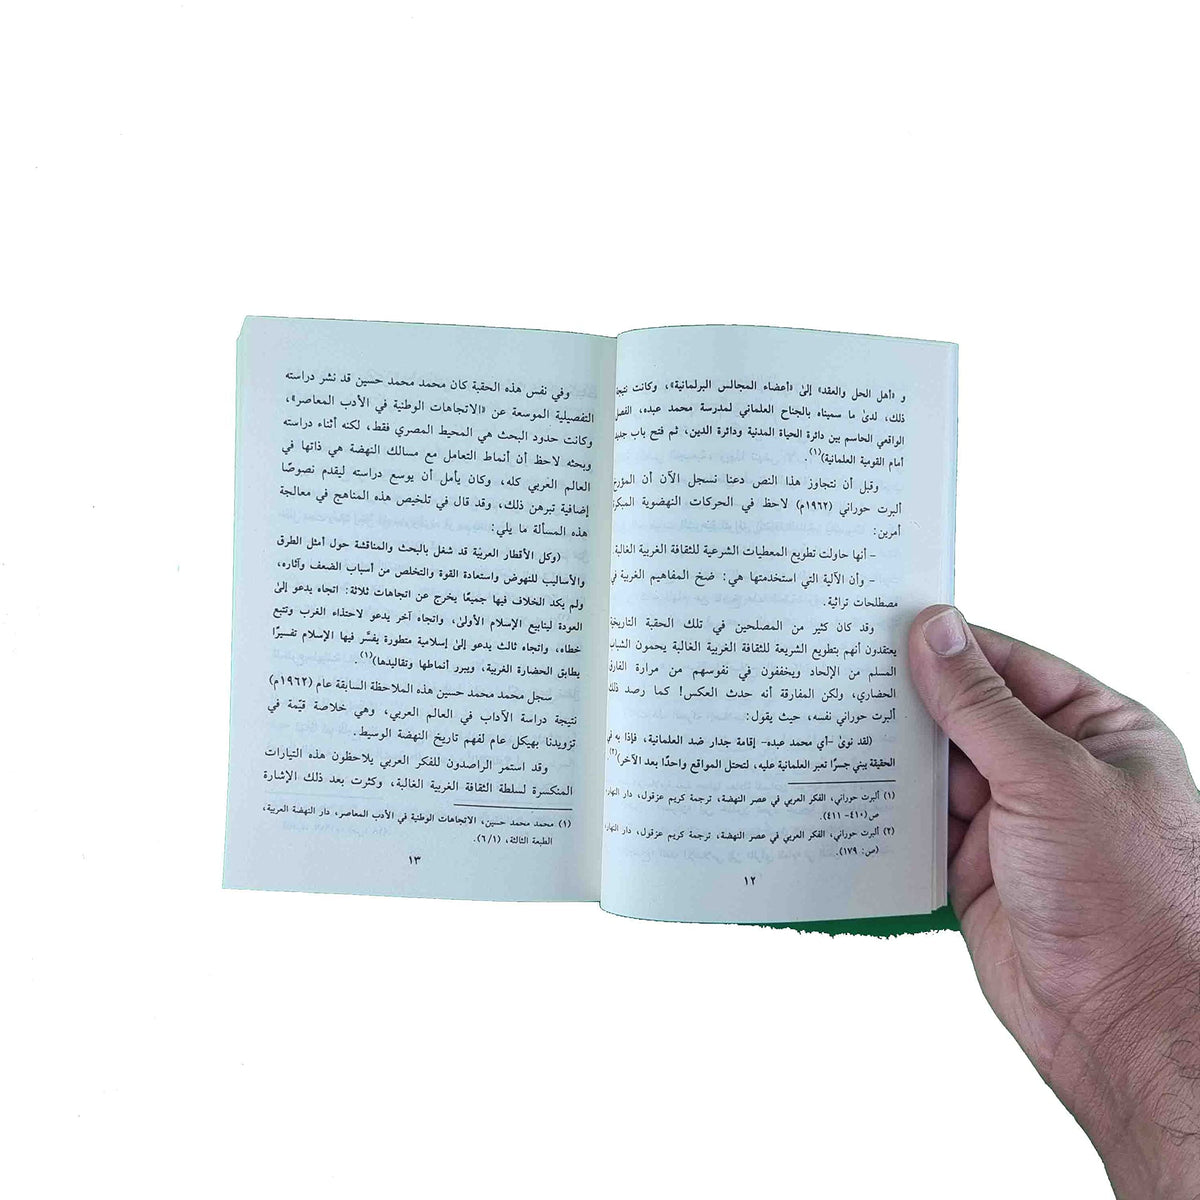 و «أهل الحل والعقد» إلىٰ «أعضاء المجالس البرلمانية»، وكانت نتيجة
ذلك، لدىٰ ما سميناه بالجناح العلماني لمدرسة محمد عبده، الفصل
الواقعي الحاسم بين دائرة الحياة المدنية ودائرة الدين، ثم فتح باب جديد
أمام القومية العلمانية)(١).
وقبل أن نتجاوز هذا النص دعنا نسجل الآن أن المؤرخ
ألبرت حوراني (١٩٦٢م) لاحظ في الحركات النهضوية المبكرة
أمرين:
- أنها حاولت تطويع المعطيات الشرعية للثقافة الغربية الغالبة.
- وأن الآلية التي استخدمتها هي: ضخ المفاهيم الغربية في
مصطلحات تراثية.
وقد كان كثير من المصلحين في تلك الحقبة التاريخية
يعتقدون أنهم بتطويع الشريعة للثقافة الغربية الغالبة يحمون الشباب
المسلم من الإلحاد ويخففون في نفوسهم من مرارة الفارق
الحضاري، ولكن المفارقة أنه حدث العكس! كما رصد ذلك
ألبرت حوراني نفسه، حيث يقول:
(لقد نوىٰ -أي محمد عبده- إقامة جدار ضد العلمانية، فإذا به في
الحقيقة يبني جسرًا تعبر العلمانية عليه، لتحتل المواقع واحدًا بعد الآخر)(٢)
(١) ألبرت حوراني، الفكر العربي في عصر النهضة، ترجمة كريم عزقول، دار النهار،
ص(٤١٠- ٤١١).
(٢) ألبرت حوراني، الفكر العربي في عصر النهضة، ترجمة كريم عزقول، دار النهار،
(ص: ١٧٩).
١٢
وفي نفس هذه الحقبة كان محمد محمد حسين قد نشر دراسته
التفصيلية الموسعة عن «الاتجاهات الوطنية في الأدب المعاصر»،
وكانت حدود البحث هي المحيط المصري فقط، لكنه أثناء دراسته
وبحثه لاحظ أن أنماط التعامل مع مسالك النهضة هي ذاتها في
العالم العربي كله، وكان يأمل أن يوسع دراسته ليقدم نصوصًا
إضافية تبرهن ذلك، وقد قال في تلخيص هذه المناهج في معالجة
هذه المسألة ما يلي:
(وكل الأقطار العربيّة قد شغل بالبحث والمناقشة حول أمثل الطرق
والأساليب للنهوض واستعادة القوة والتخلص من أسباب الضعف وآثاره،
ولم يكد الخلاف فيها جميعًا يخرج عن اتجاهات ثلاثة: اتجاه يدعو إلىٰ
العودة لينابيع الإسلام الأولىٰ، واتجاه آخر يدعو لاحتذاء الغرب وتتبع
خطاه، واتجاه ثالث يدعو إلىٰ إسلامية متطورة يفسَّر فيها الإسلام تفسيرًا
يطابق الحضارة الغربية، ويبرر أنماطها وتقاليدها)(١).
سجل محمد محمد حسين هذه الملاحظة السابقة عام (١٩٦٢م)
نتيجة دراسة الآداب في العالم العربي، وهي خلاصة قيّمة في
تزويدنا بهيكل عام لفهم تاريخ النهضة الوسيط.
وقد استمر الراصدون للفكر العربي يلاحظون هذه التيارات
المنكسرة لسلطة الثقافة الغربية الغالبة، وكثرت بعد ذلك الإشارة
(١) محمد محمد حسين، الاتجاهات الوطنية في الأدب المعاصر، دار النهضة العربية،
الطبعة الثالثة، (٦/١).
١٣